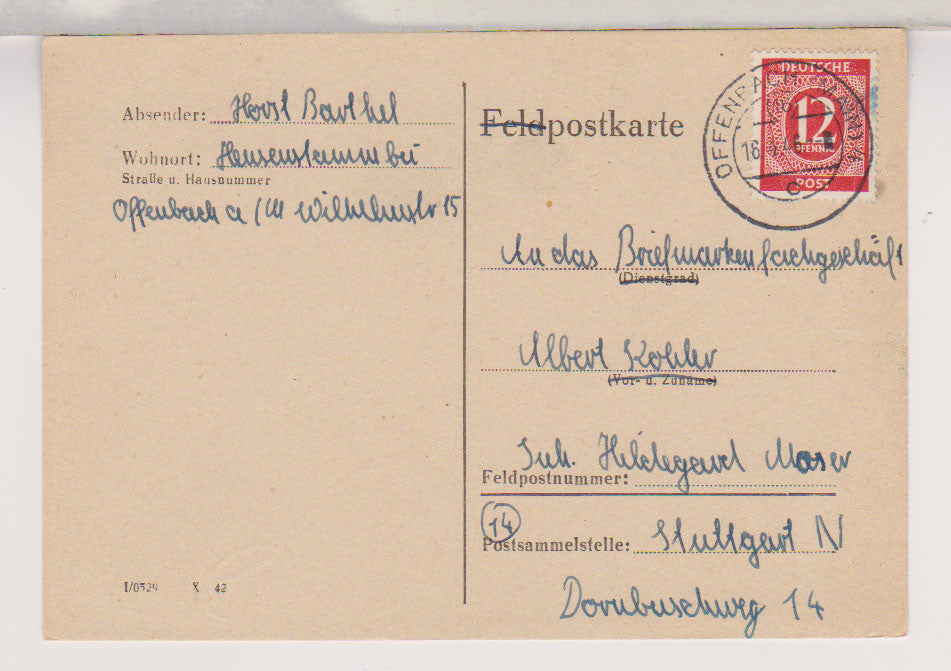 Absender: Horst Barthel
Wohnort: Heusenstamm bei
Straße u. Hausnummer
Offenbach a/M Wilhelmstr 15
I/0329 X 42
Feldpostkarte
DEUTSCHE
12
PFENNIG
POST
OFFENBACH
c
An das Briefmarkenfachgeschäft
(Dienstgrad)
Albert Kohler
(Vor- u. Zuname)
Inh. Hildegard Moser
Feldpostnummer:
14
Postsammelstelle: Stuttgart N
Dornbuschweg 14